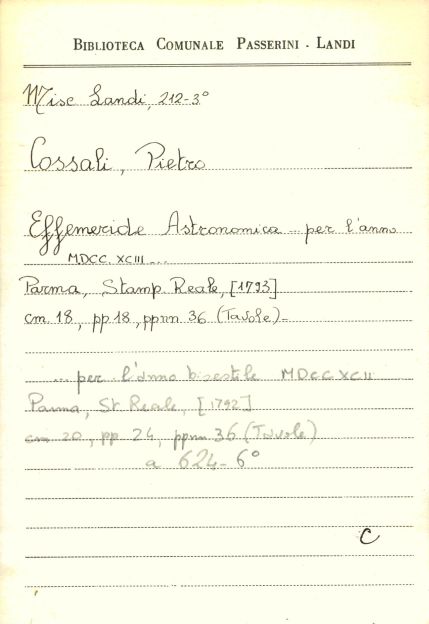 BIBLIOTECA COMUNALE PASSERINI - LANDI
Misc Landi, 212-3°
Cossali, Pietro
Effemeride Astronomica ... per l'anno
MDCC.XCIII....
Parma, Stamp Reale, [1793]
cm 18, pp 18, ppnn 36 (Tavole)-
... per l'anno bisestile MDCCXCII
Parma, St Reale, [1792]
cm 20, pp 24, ppnn 36 (Tavole)
a 624-6°
C